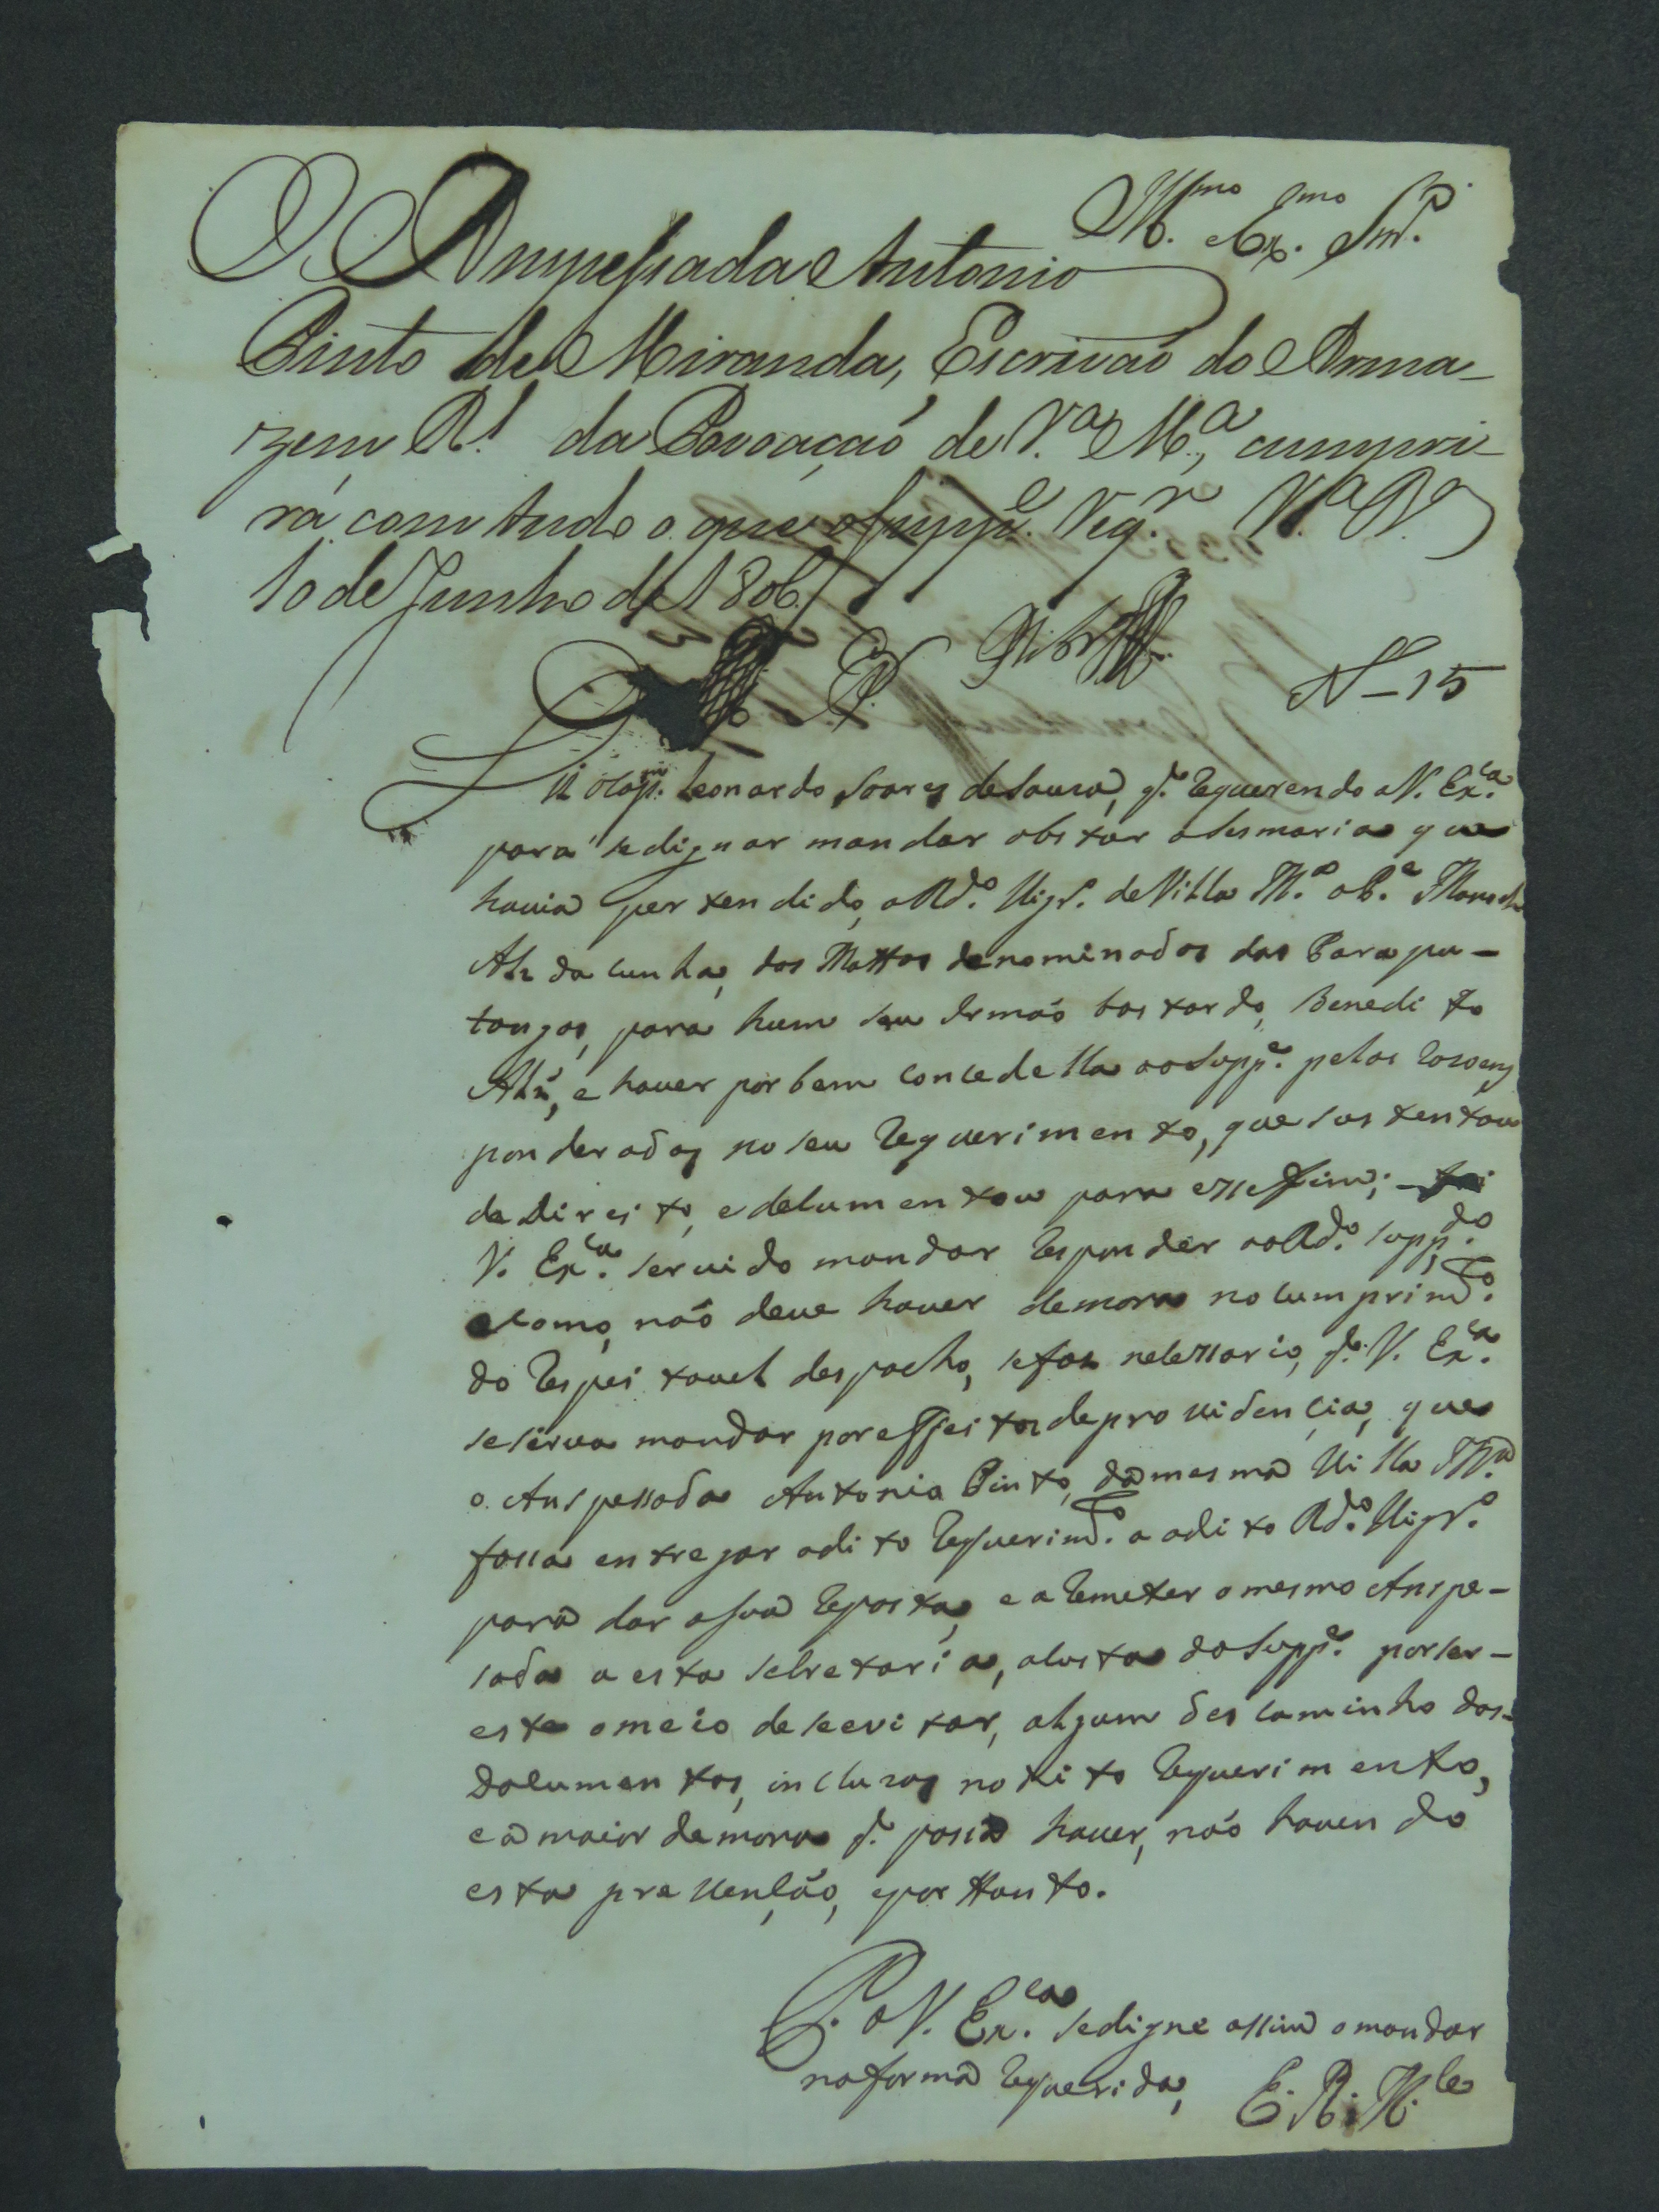 Ill.mo Ex.mo Snr.
O Anspessada Antonio
Pinto de Miranda, Escrivaõ do Arma-
zem R.l da Povoaçaõ de V.a M.a, cumpri-
rá com tudo o que o Supp.e req.r V.a B.a
10 de Junho de 1806.
N-15
Diz o Cap.m Leonardo Soares de Souza, q.e requerendo a V. Ex.ca
para se dignar mandar obstar a Sesmaria que
havia pertendido, o Rd.o Vigr.o de Villa M.a o P.e Manoel
Alz da Cunha, dos Mattos denominados das Parapu-
tangas, para hum seu Irmaõ bastardo, Benedito
Alz, e haver por bem concedella ao Supp.e pelas rasoens
ponderadas no seu requerimento, que sustentou
de Direito, e documentou para esse fim; foi
V. Ex.ca servido mandar responder ao Rd.o Supp.do
e como, naõ deve haver demora no cumprim.to
do respeitavel despacho, se faz necessario, q.e V. Ex.ca
se sirva mandar por effeitos de providencia, que
o Anspessada Antonio Pinto, da mesma Villa M.a
fassa entregar o dito requerim.to a o dito Rd.o Vigr.o
para dar a sua reposta, e a remeter o mesmo Anspe-
sada a esta Secretaria, a custa do Supp.e por ser-
este o meio de se evitar, algum descaminho dos-
documentos, incluzos no dito requerimento,
e a maior demora q.e possa haver, naõ havendo
esta prevençaõ, e por tanto.
P. a V. Ex.ca se digne assim o mandar
na forma requerida,
E. R. M.ce